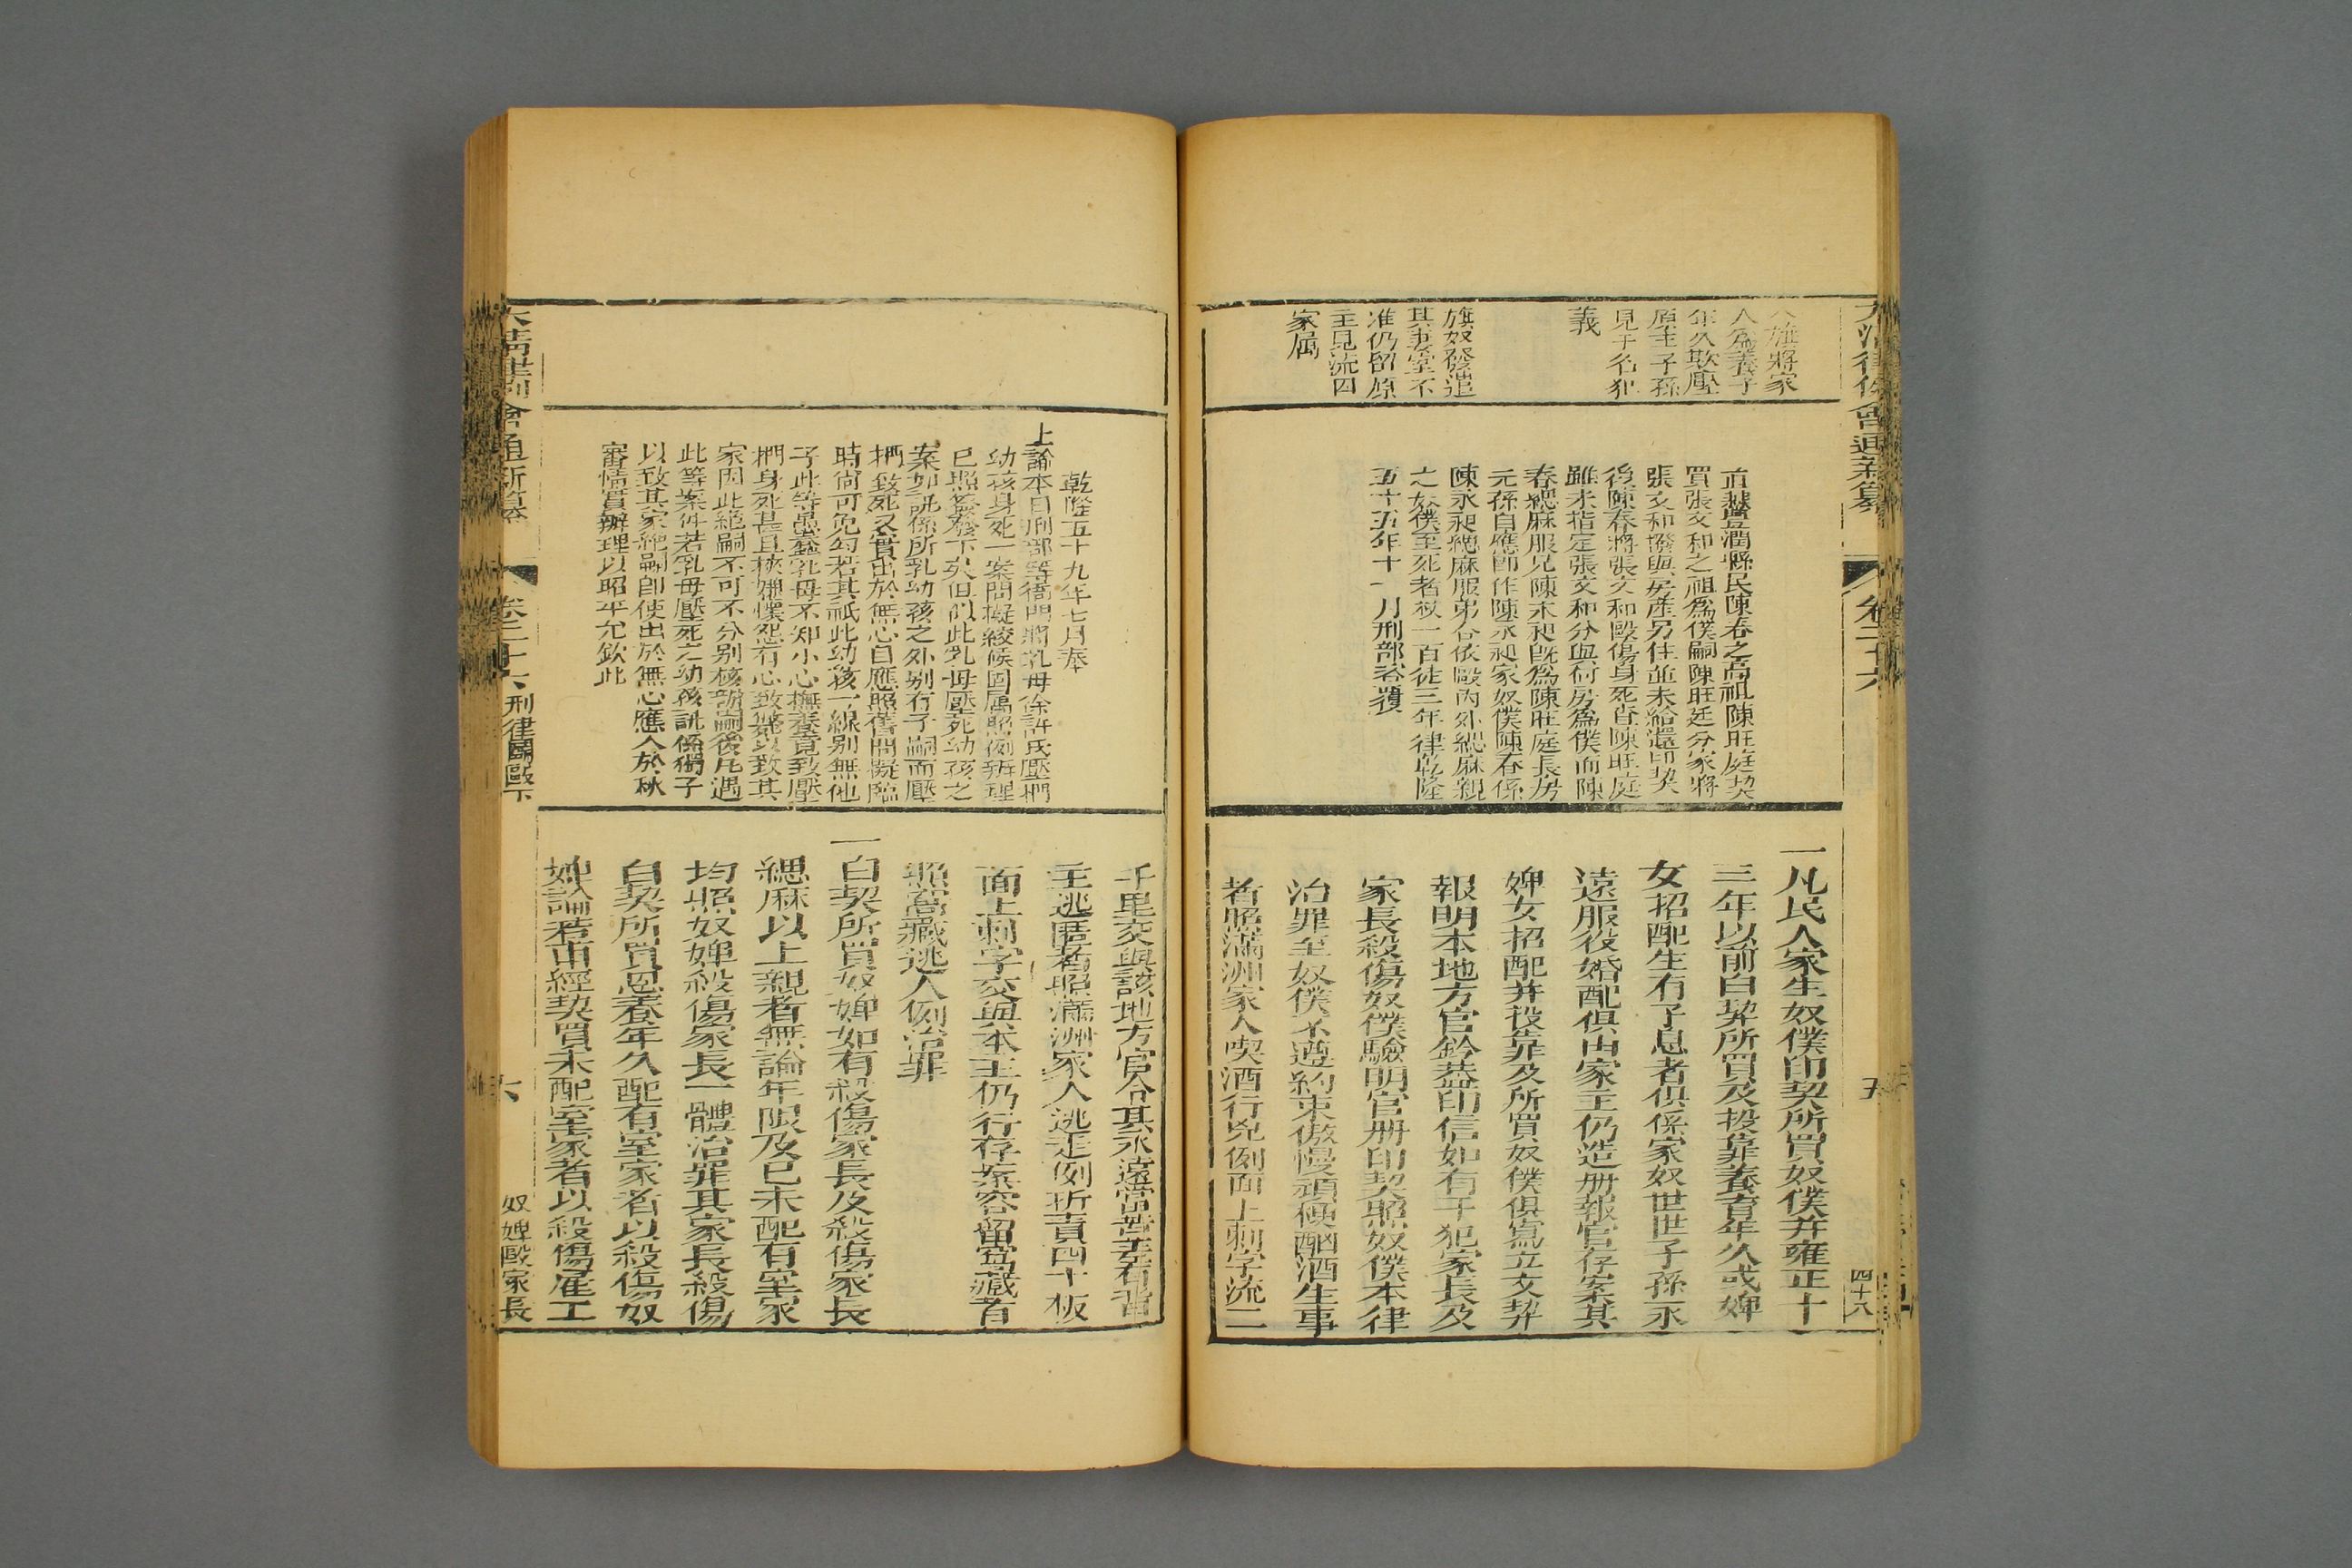 大清律例會通新纂
卷二十六
五
四十八
人爲義子
年久欺壓
原主子孫
見干名犯
義
旗奴發遣
其妻室不
准仍留原
主見流囚
家属
直𨽻豐潤縣民陳春之高祖陳旺庭契
買張文和之祖爲僕嗣陳旺廷分家將
張文和撥與房產另住並未給還印契
後陳春將張文和毆傷身死查陳旺庭
雖未指定張文和分與何房爲僕而陳
春緦麻服兄陳永昶旣爲陳旺庭長房
元孫自應卽作陳永昶家奴僕陳春係
陳永昶緦麻服弟合依毆內外緦麻親
之奴僕至死者杖一百徒三年律乾隆
五十五年十一月刑部咨覆
一凡民人家生奴僕印契所買奴僕并雍正十
三年以前白契所買及投靠養育年久或婢
女招配生有子息者俱係家奴世世子孫永
遠服役婚配俱由家主仍造册報官存案其
婢女招配并投靠及所買奴僕俱寫立文契
報明本地方官鈐葢印信如有干犯家長及
家長殺傷奴僕驗明官册印契照奴僕本律
治罪至奴僕不遵約束傲慢頑梗酗酒生事
者照滿洲家人喫酒行兇例面上刺字流二
乾隆五十九年七月奉
上諭本日刑部等衙門將乳母徐許氏壓捫
幼孩身死一案問擬絞候固屬照例辦理
已照簽發下矣但似此乳母壓死幼孩之
案如訊係所乳幼孩之外別有子嗣而壓
捫致死又實出於無心自應照舊問擬臨
時尙可免勾若其祇此幼孩一線別無他
子此等愚蠢乳母不知小心撫養竟致壓
捫身死甚且挾嫌懷怨有心致斃以致其
家因此絕嗣不可不分別核辦嗣後凡遇
此等案件若乳母壓死之幼孩訊係獨子
以致其家絕嗣卽使出於無心應入於秋
審情實辦理以昭平允欽此
千里交與該地方官令其永遠當苦差有背
主逃匿者照滿洲家人逃走例折責四十板
面上刺字交與本主仍行存案容留窩藏者
照窩藏逃人例治罪
一白契所買奴婢如有殺傷家長及殺傷家長
緦麻以上親者無論年限及已未配有室家
均照奴婢殺傷家長一體治罪其家長殺傷
白契所買恩養年久配有室家者以殺傷奴
婢論若甫經契買未配室家者以殺傷雇工
大清律例會通新纂
卷二十六
刑律鬬毆下
六
奴婢毆家長